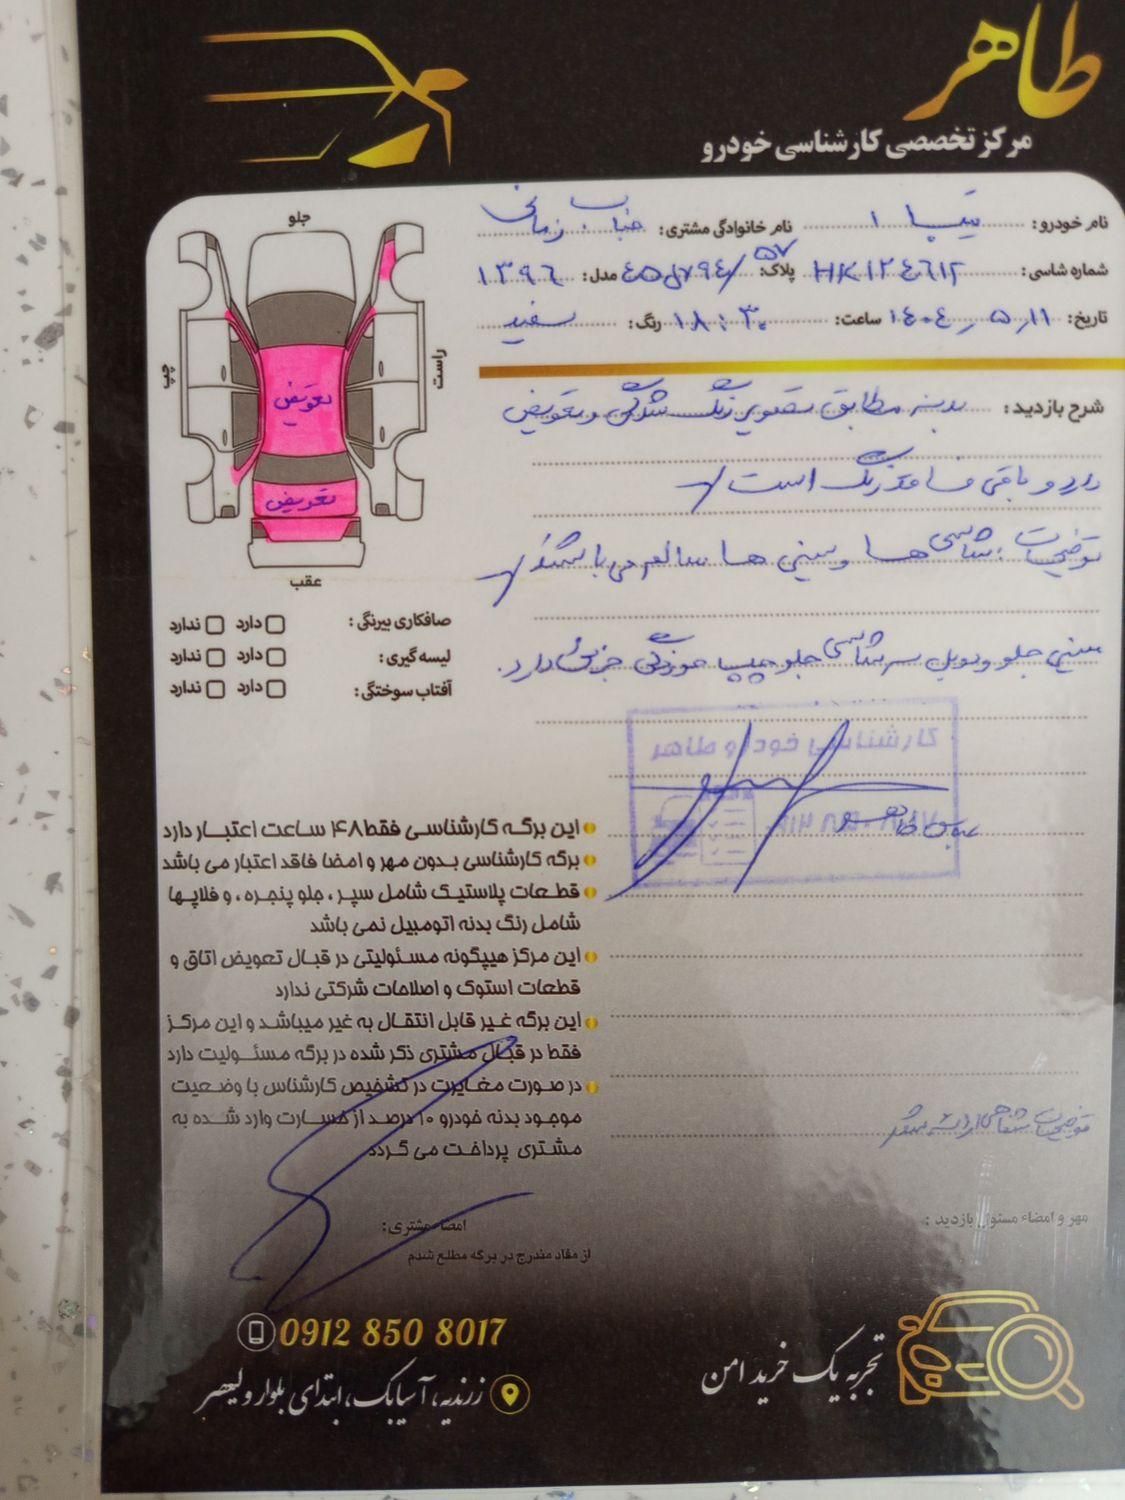 طاهر
مرکز تخصصی کارشناسی خودرو
نام خودرو: تیبا ۱ نام خانوادگی مشتری: جناب زمانی
شماره شاسی: HK124612 پلاک: ۴۵ل۷۹۴/۵۷ مدل: ۱۳۹۶
تاریخ: ۱۴۰۴٫۵٫۱۱ ساعت: ۱۸:۳۰ رنگ: سفید
شرح بازدید: بدنه مطابق تصویر رنگ شدگی و تعویض
دارد و باقی فاقد رنگ است
توضیحات: شاسی ها و سینی ها سالم می باشند
سینی جلو و سرشاسی جلو چپ خوردگی جزئی دارد.
جلو
چپ
راست
تعویض
تعویض
عقب
صافکاری بیرنگی: دارد ندارد
لیسه گیری: دارد ندارد
آفتاب سوختگی: دارد ندارد
کارشناسی خودرو طاهر
این برگه کارشناسی فقط ۴۸ ساعت اعتبار دارد
برگه کارشناسی بدون مهر و امضا فاقد اعتبار می باشد
قطعات پلاستیک شامل سپر ، جلو پنجره ، و فلاپها
شامل رنگ بدنه اتومبیل نمی باشد
این مرکز هیچگونه مسئولیتی در قبال تعویض اتاق و
قطعات استوک و اصلاحات شرکتی ندارد
این برگه غیر قابل انتقال به غیر میباشد و این مرکز
فقط در قبال مشتری ذکر شده در برگه مسئولیت دارد
در صورت مغایرت در تشخیص کارشناس با وضعیت
موجود بدنه خودرو ۱۰ درصد از خسارت وارد شده به
مشتری پرداخت می گردد
توضیحات شفاهی ارائه شد
مهر و امضاء مسئول بازدید :
امضاء مشتری:
از مفاد مندرج در برگه مطلع شدم
0912 850 8017
زرندیه، آسیابک، ابتدای بلوار ولیعصر
تجربه یک خرید امن